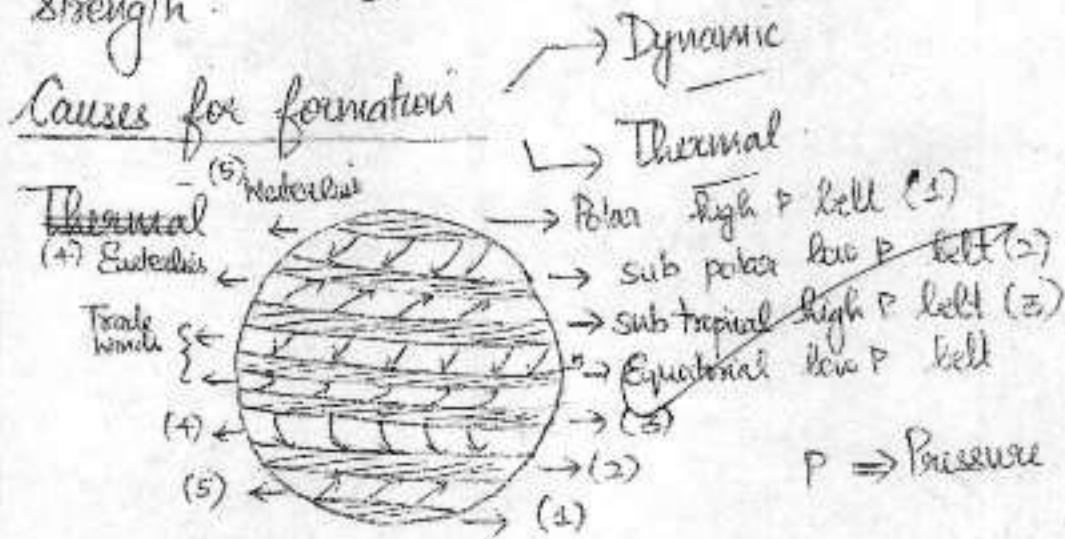 strength.
Causes for formation
→ Dynamic
→ Thermal
Thermal
(5) Westerlies
(4) Easterlies
Trade winds
(4)
(5)
→ Polar high P belt (1)
→ sub polar low P belt (2)
→ sub tropical high P belt (3)
→ Equatorial low P belt
→ (3)
→ (2)
→ (1)
P ⇒ Pressure